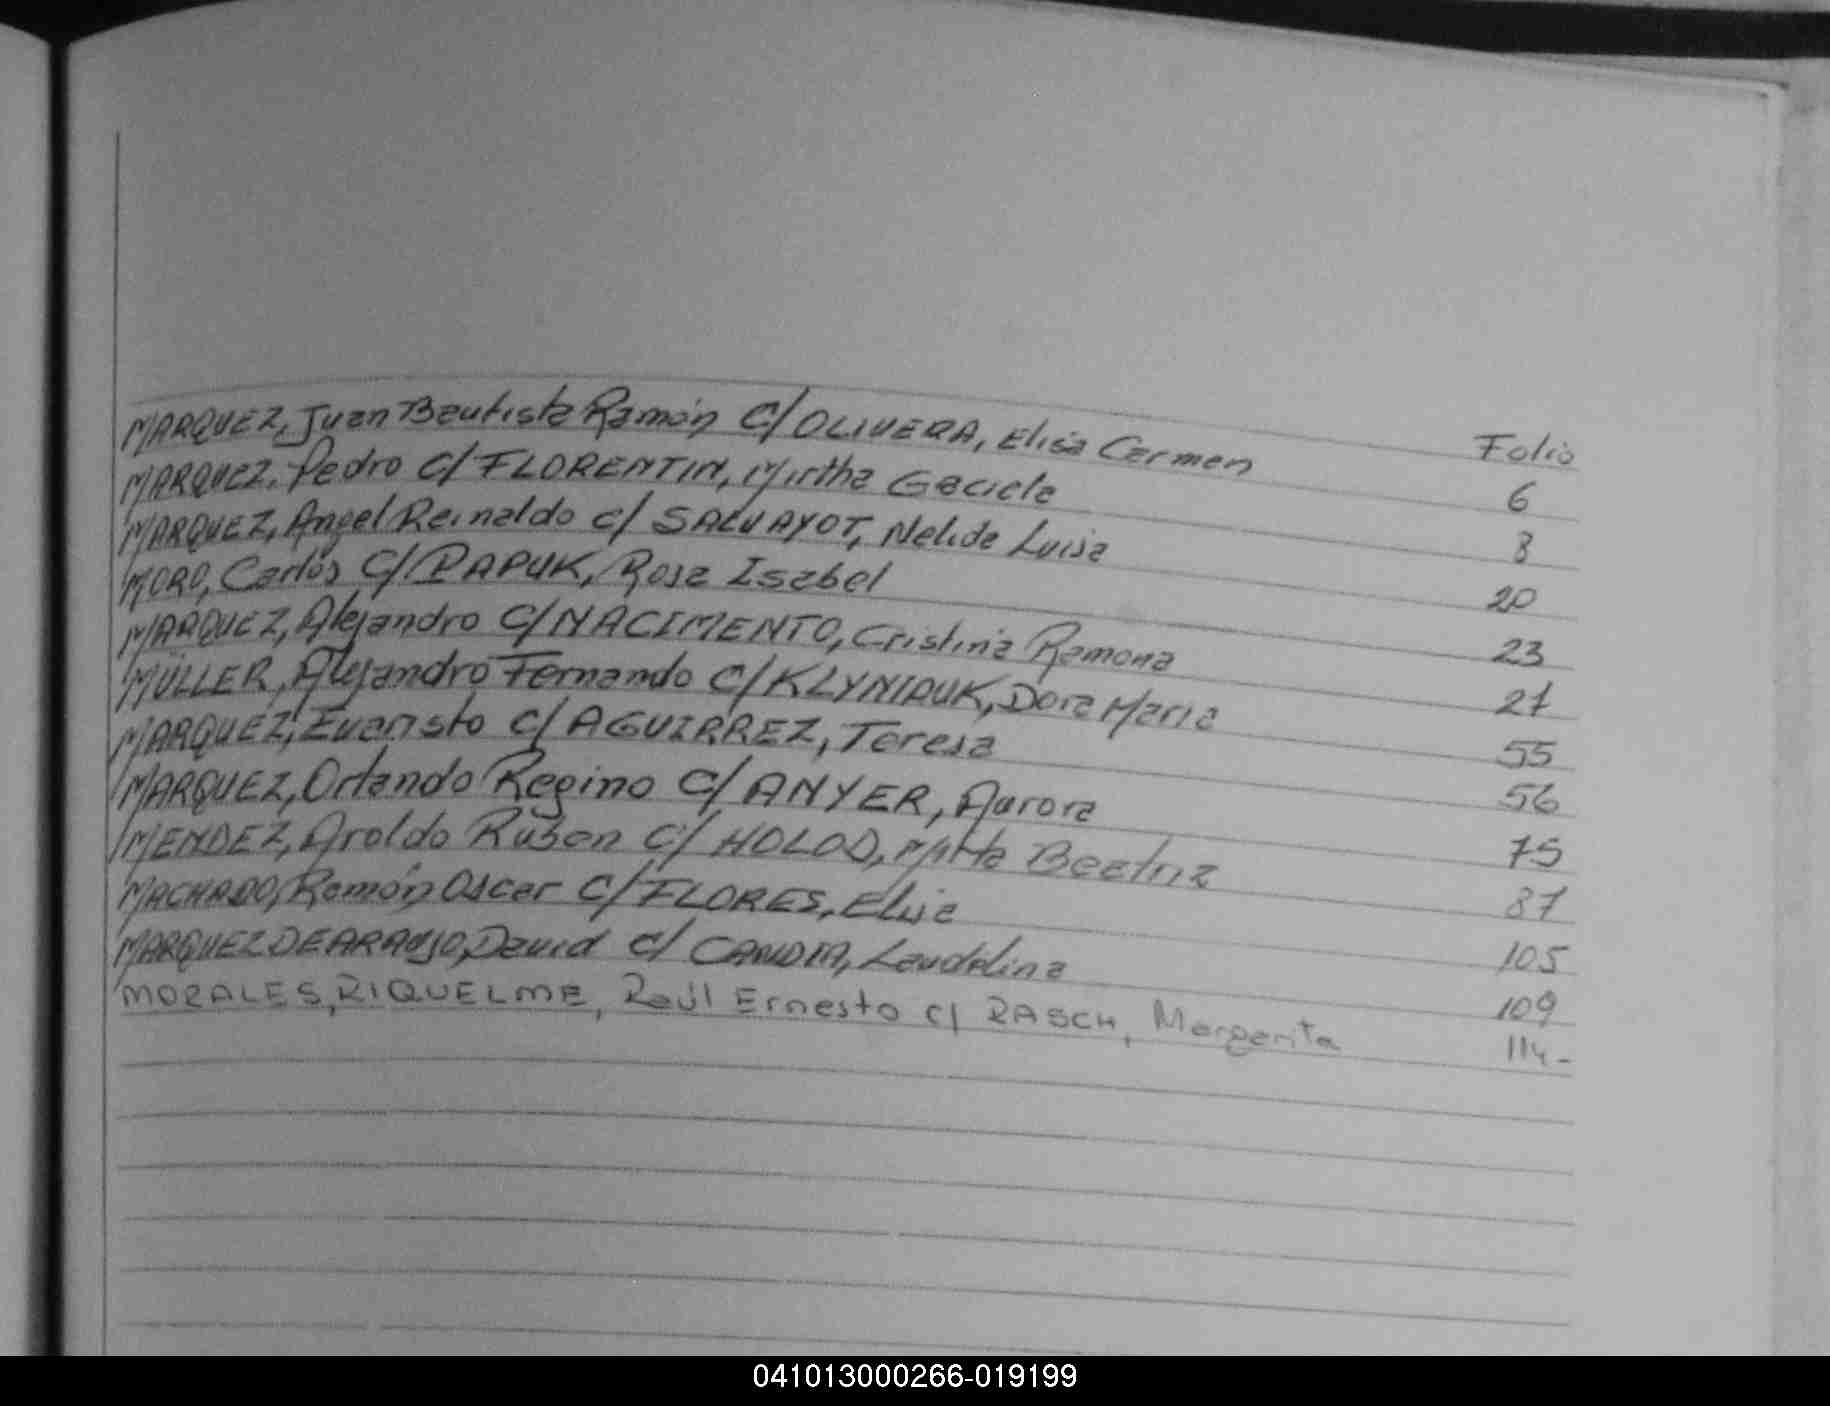 Folio
MARQUEZ, Juan Bautista Ramón C/ OLIVERA, Elisa Carmen 6
MARQUEZ, Pedro C/ FLORENTIN, Mirtha Gaciela 8
MARQUEZ, Angel Reinaldo c/ SALVAYOT, Nelida Luisa 20
MORO, Carlos C/ PAPUK, Rosa Isabel 23
MARQUEZ, Alejandro C/ NACIMENTO, Cristina Ramona 27
MÜLLER, Alejandro Fernando C/ KLYNIAUK, Dora Maria 55
MARQUEZ, Evaristo c/ AGUIRREZ, Teresa 56
MARQUEZ, Orlando Regino C/ ANYER, Aurora 75
MENDEZ, Aroldo Ruben C/ HOLOD, Mirta Beatriz 87
MACHADO, Ramón Oscar C/ FLORES, Elisa 105
MARQUEZ DE ARAUJO, David c/ CANDIA, Laudelina 109
MORALES, RIQUELME, Raúl Ernesto c/ RASCH, Margarita 114-
041013000266-019199